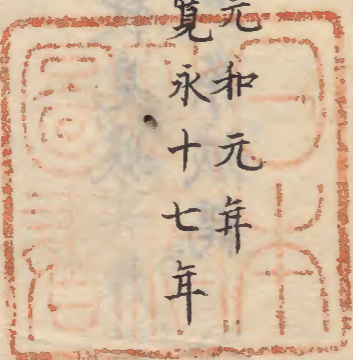 元和元年
寛永十七年